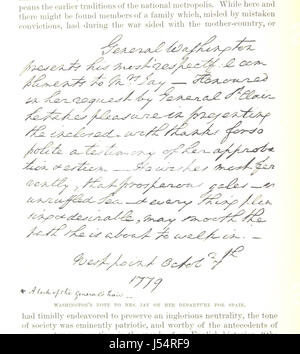 peans the earlier traditions of the national metropolis. While here and
there might be found members of a family which, misled by mistaken
convictions, had during the war sided with the mother-country, or
General Washington
presents his most respectful com
pliments to Mrs Jay — Honoured
in her request by General St Clair
he takes pleasure in presenting
the inclosed, with thanks for so
polite a testimony of her approba
tion & esteem — He wishes most fer
vently, that prosperous gales — un
unruffled Sea — & every thing plea
sing & desirable, may smooth the
path she is about to walk in —
West point Octobr 7th
1779
* A lock of the general's hair —
WASHINGTON'S NOTE TO MRS. JAY ON HER DEPARTURE FOR SPAIN.
had timidly endeavored to preserve an inglorious neutrality, the tone
of society was eminently patriotic, and worthy of the antecedents of
alamy
Image ID: J54RF9
www.alamy.com